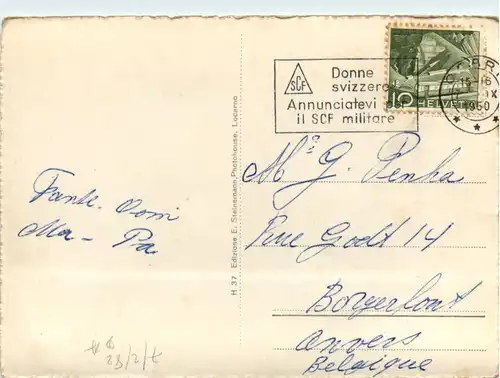 Donne
svizzere
Annunciatevi per
il SCF militare
SCF
10 HELVETIA
15-16
IX
1950
H 37 Edizione E. Steinemann, Photohouse, Locarno
Tante. Domi
Ma - Pa
Mr G. Penha
Rue Godt 14
Borgerhout
Anvers
Belgique